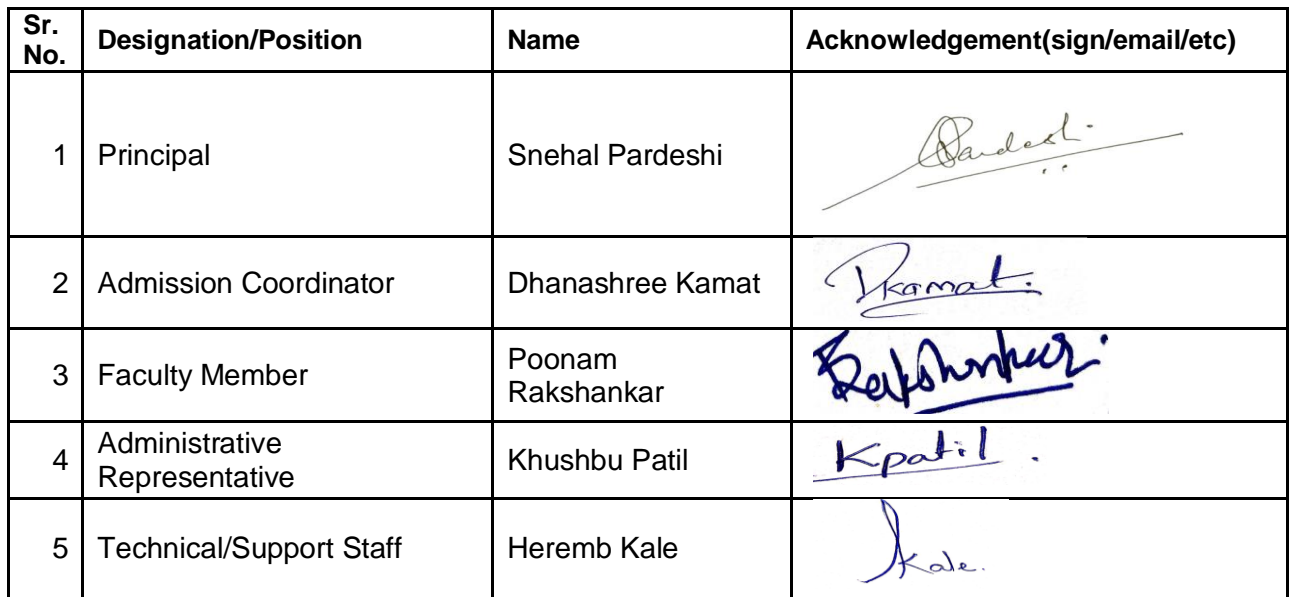 Sr. No. Designation/Position Name Acknowledgement(sign/email/etc)
1 Principal Snehal Pardeshi Pardeshi
2 Admission Coordinator Dhanashree Kamat Dkamat.
3 Faculty Member Poonam Rakshankar
4 Administrative Representative Khushbu Patil Kpatil.
5 Technical/Support Staff Heremb Kale Kale.